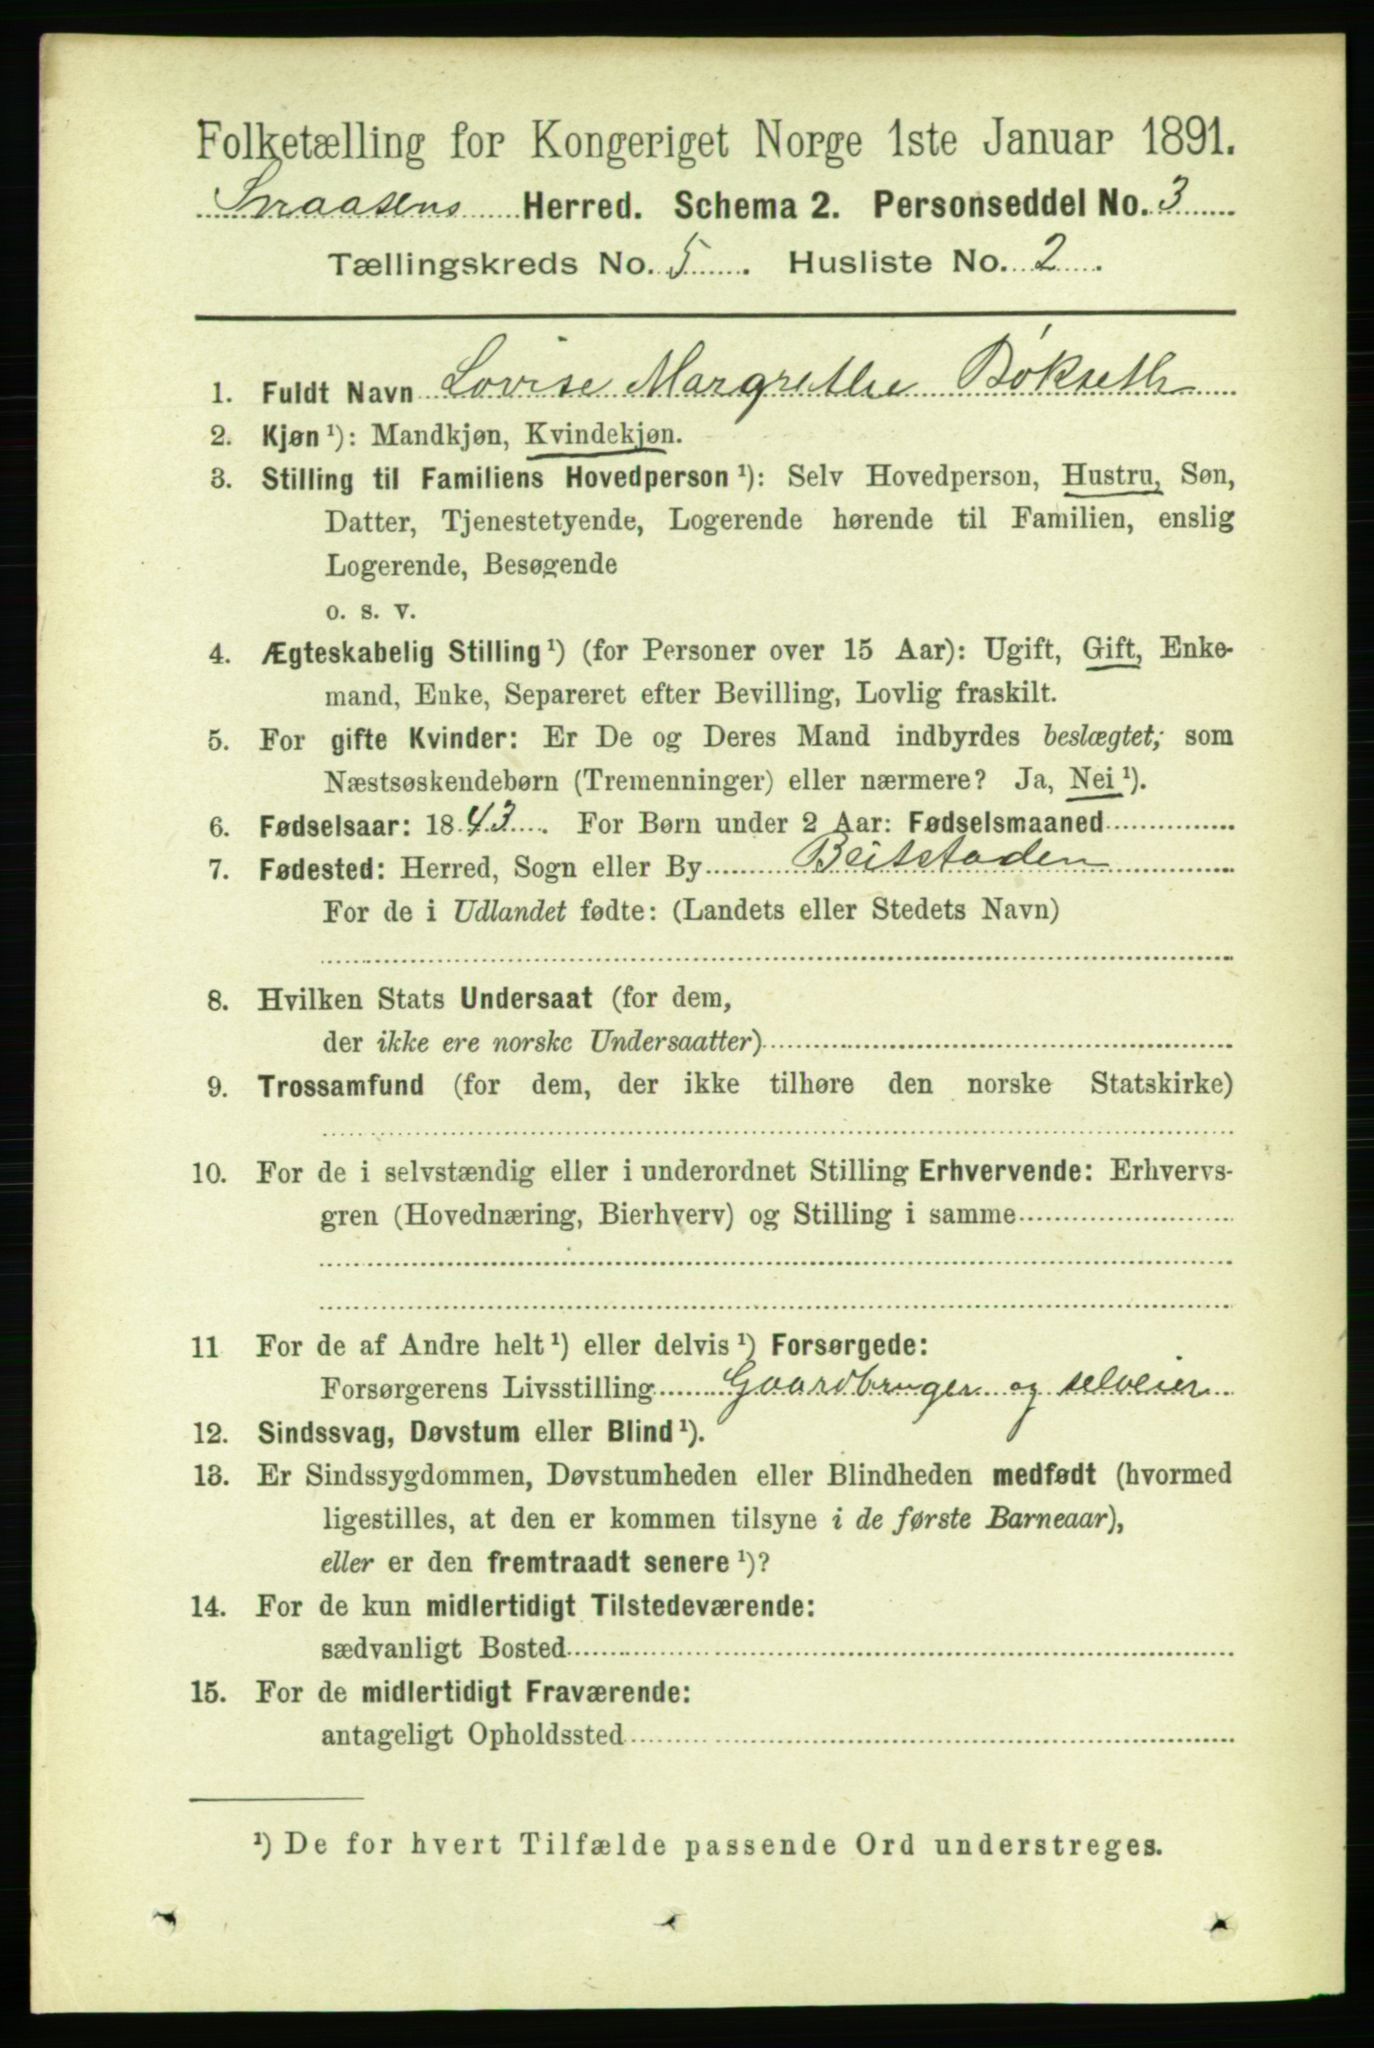 Folketælling for Kongeriget Norge 1ste Januar 1891.
Snaasens Herred. Schema 2. Personseddel No. 3
Tællingskreds No. 5. Husliste No. 2.
1. Fuldt Navn Lovise Margrethe Bökseth
2. Kjøn ¹): Mandkjøn, Kvindekjøn.
3. Stilling til Familiens Hovedperson ¹): Selv Hovedperson, Hustru, Søn,
Datter, Tjenestetyende, Logerende hørende til Familien, enslig
Logerende, Besøgende
o. s. v.
4. Ægteskabelig Stilling ¹) (for Personer over 15 Aar): Ugift, Gift, Enke-
mand, Enke, Separeret efter Bevilling, Lovlig fraskilt.
5. For gifte Kvinder: Er De og Deres Mand indbyrdes beslægtet, som
Næstsøskendebørn (Tremenninger) eller nærmere? Ja, Nei ¹).
6. Fødselsaar: 1843. For Børn under 2 Aar: Fødselsmaaned
7. Fødested: Herred, Sogn eller By Beitstaden
For de i Udlandet fødte: (Landets eller Stedets Navn)
8. Hvilken Stats Undersaat (for dem,
der ikke ere norske Undersaatter)
9. Trossamfund (for dem, der ikke tilhøre den norske Statskirke)
10. For de i selvstændig eller i underordnet Stilling Erhvervende: Erhvervs-
gren (Hovednæring, Bierhverv) og Stilling i samme
11 For de af Andre helt ¹) eller delvis ¹) Forsørgede:
Forsørgerens Livsstilling Gaardbruger og selveier
12. Sindssvag, Døvstum eller Blind ¹).
13. Er Sindssygdommen, Døvstumheden eller Blindheden medfødt (hvormed
ligestilles, at den er kommen tilsyne i de første Barneaar),
eller er den fremtraadt senere ¹)?
14. For de kun midlertidigt Tilstedeværende:
sædvanligt Bosted
15. For de midlertidigt Fraværende:
antageligt Opholdssted
¹) De for hvert Tilfælde passende Ord understreges.